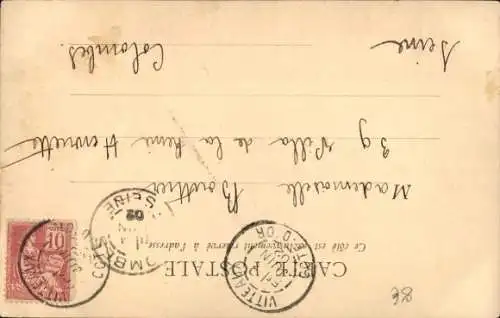 CARTE POSTALE
Ce côté est exclusivement réservé à l'adresse
Mademoiselle
39 Villa de la Reine Henriette
Colombes
Seine
10
VITTEAUX
CÔTE-D'OR
COLOMBES
SEINE
02
98